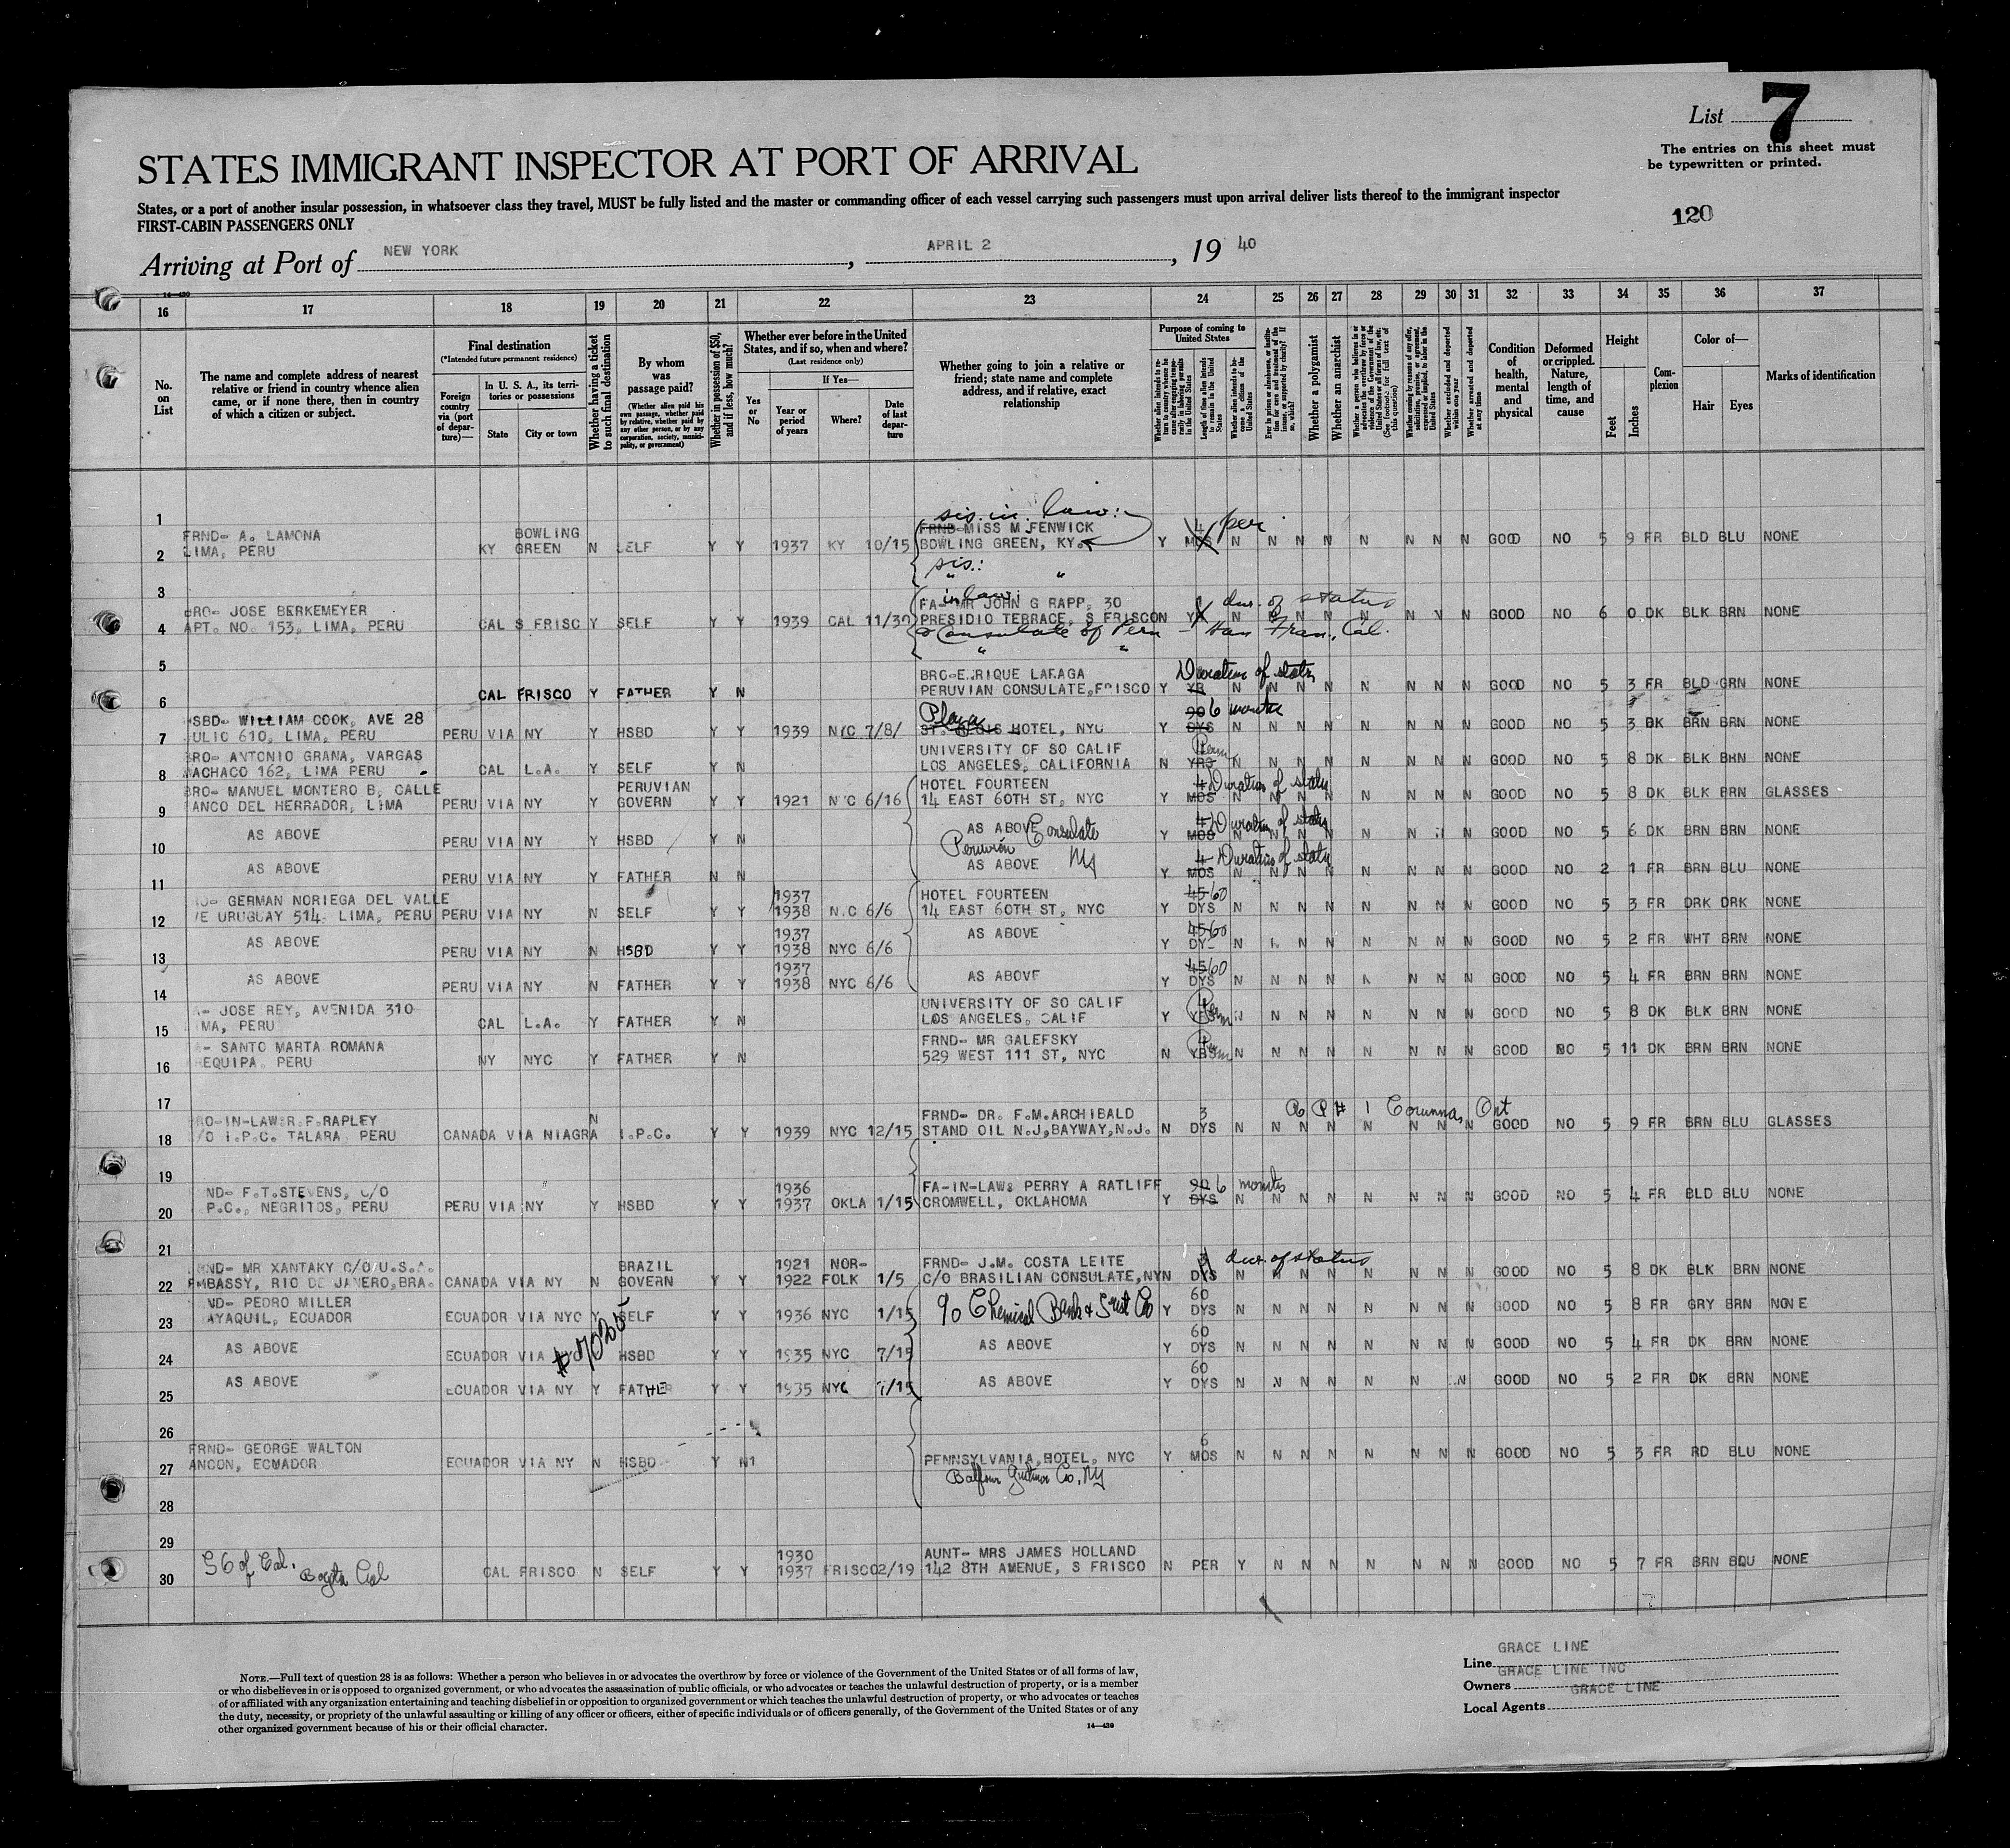 List 7
The entries on this sheet must
be typewritten or printed.
STATES IMMIGRANT INSPECTOR AT PORT OF ARRIVAL
States, or a port of another insular possession, in whatsoever class they travel, MUST be fully listed and the master or commanding officer of each vessel carrying such passengers must upon arrival deliver lists thereof to the immigrant inspector
FIRST-CABIN PASSENGERS ONLY
120
Arriving at Port of NEW YORK, APRIL 2, 19 40
16 17 18 19 20 21 22 23 24 25 26 27 28 29 30 31 32 33 34 35 36 37
No. on List
The name and complete address of nearest relative or friend in country whence alien came, or if none there, then in country of which a citizen or subject.
Final destination
(*Intended future permanent residence)
Foreign country via (port of departure)—
In U. S. A., its territories or possessions
State
City or town
Whether having a ticket to such final destination
By whom was passage paid?
(Whether alien paid his own passage, whether paid by relative, whether paid by any other person, or by any corporation, society, municipality, or government)
Whether in possession of $50, and if less, how much?
Whether ever before in the United States, and if so, when and where?
(Last residence only)
Yes or No
If Yes—
Year or period of years
Where?
Date of last departure
Whether going to join a relative or friend; state name and complete address, and if relative, exact relationship
Purpose of coming to United States
Whether a polygamist
Whether an anarchist
Condition of health, mental and physical
Deformed or crippled. Nature, length of time, and cause
Height
Feet
Inches
Complexion
Color of—
Hair
Eyes
Marks of identification
1
sis. in law:
FRND- A. LAMONA BOWLING FRND-MISS M FENWICK 4 per
2 LIMA, PERU KY GREEN N SELF Y Y 1937 KY 10/15 BOWLING GREEN, KY. Y MOS N N N N N N N N GOOD NO 5 9 FR BLD BLU NONE
sis.:
3
in law:
BRO- JOSE BERKEMEYER FA- MR JOHN G RAPP, 30 dur. of status
4 APT. NO. 153, LIMA, PERU CAL S FRISC Y SELF Y Y 1939 CAL 11/30 PRESIDIO TERRACE, S FRISCO N GOOD NO 6 0 DK BLK BRN NONE
Consulate of Peru - San Fran., Cal.
5
Duration of status
6 CAL FRISCO Y FATHER Y N PERUVIAN CONSULATE, FRISCO Y YR N N N N N N N N GOOD NO 5 3 FR BLD GRN NONE
HSBD- WILLIAM COOK, AVE 28 Plaza 90 6 months
7 JULIO 610, LIMA, PERU PERU VIA NY Y HSBD Y Y 1939 NYC 7/8/ HOTEL, NYC Y DYS N N N N N N N N GOOD NO 5 3 DK BRN BRN NONE
BRO- ANTONIO GRANA, VARGAS UNIVERSITY OF SO CALIF Perm
8 MACHACO 162, LIMA PERU CAL L.A. Y SELF Y N LOS ANGELES, CALIFORNIA N YRS N N N N N N N N GOOD NO 5 8 DK BLK BRN NONE
BRO- MANUEL MONTERO B, CALLE PERUVIAN HOTEL FOURTEEN 4 Duration of status
9 BANCO DEL HERRADOR, LIMA PERU VIA NY Y GOVERN Y Y 1921 NYC 6/16 14 EAST 60TH ST, NYC Y MOS N N N N N N N N GOOD NO 5 8 DK BLK BRN GLASSES
AS ABOVE AS ABOVE Consulate 4 Duration of status
10 PERU VIA NY Y HSBD Y N Y MOS N N N N N N N GOOD NO 5 6 DK BRN BRN NONE
AS ABOVE Peruvian AS ABOVE NY 4 Duration of status
11 PERU VIA NY Y FATHER N N Y MOS N N N N N N N N GOOD NO 2 1 FR BRN BLU NONE
BRO- GERMAN NORIEGA DEL VALLE 1937 HOTEL FOURTEEN 45 60
12 AVE URUGUAY 514, LIMA, PERU PERU VIA NY N SELF Y Y 1938 N.C 6/6 14 EAST 60TH ST, NYC Y DYS N N N N N N N N GOOD NO 5 3 FR DRK DRK NONE
AS ABOVE 1937 AS ABOVE 45 60
13 PERU VIA NY N HSBD Y Y 1938 NYC 6/6 Y DY N N N N N N N GOOD NO 5 2 FR WHT BRN NONE
AS ABOVE 1937 AS ABOVE 45 60
14 PERU VIA NY N FATHER Y Y 1938 NYC 6/6 Y DYS N N N N N N N N GOOD NO 5 4 FR BRN BRN NONE
JOSE REY, AVENIDA 310 UNIVERSITY OF SO CALIF Perm
15 LIMA, PERU CAL L.A. Y FATHER Y N LOS ANGELES, CALIF Y YRS N N N N N N N N GOOD NO 5 8 DK BLK BRN NONE
SANTO MARTA ROMANA FRND- MR GALEFSKY 4 Perm
16 AREQUIPA, PERU NY NYC Y FATHER Y N 529 WEST 111 ST, NYC N YRS N N N N N N N N GOOD NO 5 11 DK BRN BRN NONE
17
BRO-IN-LAW R.F.RAPLEY N FRND- DR. F.M.ARCHIBALD 3
18 C/O I.P.C. TALARA, PERU CANADA VIA NIAGRA I.P.C. Y Y 1939 NYC 12/15 STAND OIL N.J,BAYWAY,N.J. N DYS N N N N N N N N GOOD NO 5 9 FR BRN BLU GLASSES
19
FRND- F.T.STEVENS, C/O 1936 FA-IN-LAW: PERRY A RATLIFF 90 6 months
20 I.P.C., NEGRITOS, PERU PERU VIA NY Y HSBD Y Y 1937 OKLA 1/15 CROMWELL, OKLAHOMA Y DYS N N N N N N N N GOOD NO 5 4 FR BLD BLU NONE
21
FRND- MR XANTAKY C/O U.S.A. BRAZIL 1921 NOR- FRND- J.M. COSTA LEITE dur. of status
22 EMBASSY, RIO DE JANERO,BRA. CANADA VIA NY N GOVERN Y Y 1922 FOLK 1/5 C/O BRASILIAN CONSULATE,NY N DYS N N N N N N N N GOOD NO 5 8 DK BLK BRN NONE
FRND- PEDRO MILLER 60
23 GUAYAQUIL, ECUADOR ECUADOR VIA NYC Y SELF Y Y 1936 NYC 1/15 c/o Chemical Bank & Trust Co Y DYS N N N N N N N N GOOD NO 5 8 FR GRY BRN NONE
AS ABOVE AS ABOVE 60
24 ECUADOR VIA HSBD Y Y 1935 NYC 7/15 Y DYS N N N N N N N N GOOD NO 5 4 FR DK BRN NONE
AS ABOVE AS ABOVE 60
25 ECUADOR VIA NY Y FATHER Y Y 1935 NYC 7/15 Y DYS N N N N N N N GOOD NO 5 2 FR DK BRN NONE
26
FRND- GEORGE WALTON 6
27 ANCON, ECUADOR ECUADOR VIA NY N HSBD Y N PENNSYLVANIA HOTEL, NYC Y MOS N N N N N N N N GOOD NO 5 3 FR RD BLU NONE
Balfour Guthrie Co, NY
28
29
of Cal. Bogota Col 1930 AUNT- MRS JAMES HOLLAND
30 CAL FRISCO N SELF Y Y 1937 FRISCO 2/19 142 8TH AMENUE, S FRISCO N PER Y N N N N N N N GOOD NO 5 7 FR BRN BLU NONE
NOTE.—Full text of question 28 is as follows: Whether a person who believes in or advocates the overthrow by force or violence of the Government of the United States or of all forms of law,
or who disbelieves in or is opposed to organized government, or who advocates the assassination of public officials, or who advocates or teaches the unlawful destruction of property, or is a member
of or affiliated with any organization entertaining and teaching disbelief in or opposition to organized government or which teaches the unlawful destruction of property, or who advocates or teaches
the duty, necessity, or propriety of the unlawful assaulting or killing of any officer or officers, either of specific individuals or of officers generally, of the Government of the United States or of any
other organized government because of his or their official character.
14—430
Line GRACE LINE
Owners GRACE LINE INC
Local Agents GRACE LINE